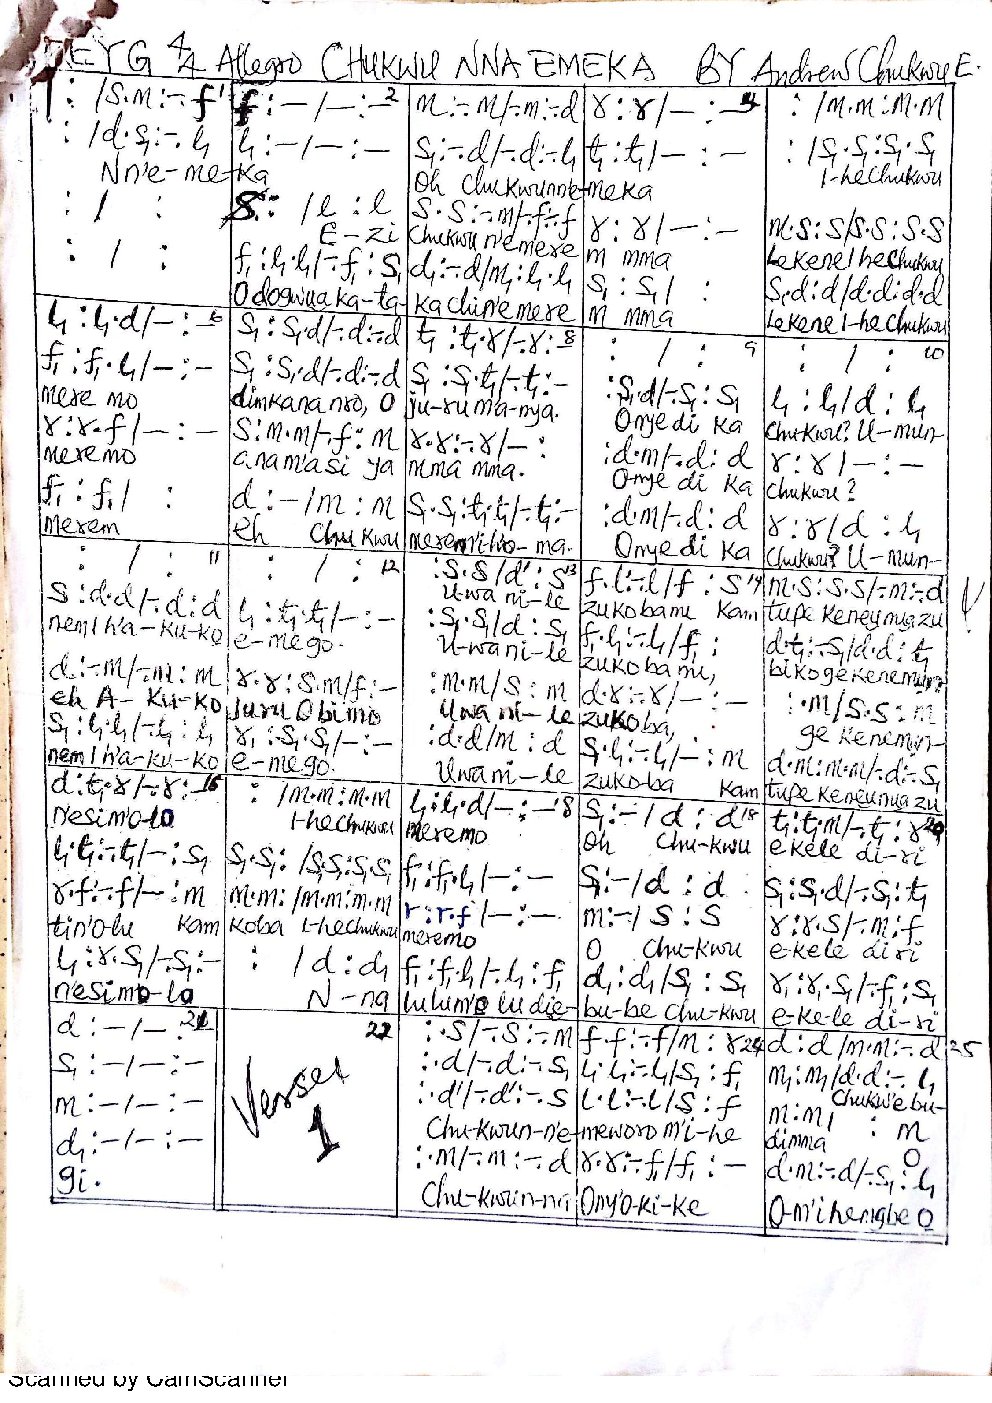 KEY G 4/4 Allegro CHUKWU NNA EMEKA BY Andrew Chukwu E.
: /s.m:-.f 1
: /d.s₁:-.l₁
Nn'e-me-ka
: / :
: / :
f:-/-:- 2
l₁:-/-:-
s: /l:l
E-zi
f₁:l₁.l₁/-.f₁:s₁
Odogwu aka-ta-
m:-.m/-.m:-.d
s₁:-.d/-.d:-.l₁
Oh Chukwunne-meka
s.s:-.m/-.f:-.f
Chukwu n'emere
d₁:-.d/m₁:l₁.l₁
ka chi n'emere
r:r/-:- 4
t₁:t₁/-:-
r:r/-:-
m mma
s₁:s₁/ :
m mma
: /m.m:m.m
: /s₁.s₁:s₁.s₁
I-he Chukwu
m.s:s/s.s:s.s
Lekene I he Chukwu
s₁.d:d/d.d:d.d
Lekene I-he Chukwu
l₁:l₁.d/-:- 6
f₁:f₁.l₁/-:-
mere mo
r:r.f/-:-
meremo
f₁:f₁/ :
merem
s₁:s₁.d/-.d:-.d
s₁:s₁.d/-.d:-.d
dimkana nro, O
s:m.m/-.f:m
anam'asi ya
d:-/m:m
eh Chukwu
t₁:t₁.r/-.r:- 8
s₁:s₁.t₁/-.t₁:-
ju-ru ma-nya.
r.r:-.r/-:
mma mma.
s₁.s₁:t₁.t₁/-.t₁:-
: / : 9
:s₁.d/-.s₁:s₁
Onye di ka
:d.m/-.d:d
Onye di ka
:d.m/-.d:d
Onye di ka
: / : 10
l₁:l₁/d:l₁
Chukwu? U-mun-
r:r/-:-
Chukwu?
r:r/d:l₁
Chukwu? U-mun-
: / : 11
s:d.d/-.d:d
nem I h'a-ku-ko
d:-.m/-.m:m
eh A-ku-ko
s₁:l₁.l₁/-.l₁:l₁
nem I h'a-ku-ko
: / : 12
l₁:t₁.t₁/-:-
e-mego.
r.r:s.m/f:-
juru Obi mo
r₁:s₁.s₁/-:-
e-mego.
:s.s/d':s 13
Uwa ni-le
:s₁.s₁/d:s₁
U-wa ni-le
:m.m/s:m
Uwa ni-le
:d.d/m:d
Uwa ni-le
f.l:-.l/f:s 14
zukobanu kam
f₁.l₁:-.l₁/f₁:
zukoba nu,
d.r:-.r/-:-
zukoba,
s₁.l₁:-.l₁/-:m
zuko-ba kam
m.s:s.s/-.m:-.d
tupe Keneunuazu
d.t₁:-.s₁/d.d:t₁
:.m/s.s:m
ge Kenemun-
d.m:m.m/-.d:-.s₁
tupe Keneunua zu
d:t₁.r/-.r:- 16
n'esimo-lo
l₁.t₁:-.t₁/-:s₁
r.f:-.f/-:m
tin'o-lu kam
l₁:r.s₁/-.s₁:-
n'esimo-lo
: /m.m:m.m
I-he Chukwu
s₁.s₁: /s₁.s₁:s₁.s₁
m.m: /m.m:m.m
koba I-he Chukwu
: /d:d₁
N-na
l₁:l₁.d/-:- 18
meremo
f₁:f₁.l₁/-:-
r:r.f/-:-
meremo
f₁:f₁.l₁/-.l₁:f₁
s₁:-/d:d 18
Oh Chu-kwu
s₁:-/d:d
m:-/s:s
O Chu-kwu
d₁:d₁/s₁:s₁
bu-be Chu-kwu
t₁:t₁.m/-.t₁:r 20
ekele di-ri
s₁:s₁.d/-.s₁:t₁
r:r.s/-.m:f
e-kele diri
r₁:r₁.s₁/-.f₁:s₁
e-ke-le di-ri
d:-/-: 21
s₁:-/-:-
m:-/-:-
d₁:-/-:-
gi.
22
Verse 1
:.s/-.s:-.m
:.d/-.d:-.s₁
:.d'/-.d':-.s
Chu-kwun-n'e-meworo m'i-he
:.m/-.m:-.d
Chu-kwun-na
f.f:-.f/m:r 24
l₁.l₁:-.l₁/s₁:f₁
l.l:-.l/s:f
r.r:-.f/f₁:-
Ony'o-ki-ke
d:d/m.m:-.d 25
m₁:m₁/d.d:-.l₁
Chukw'e bu-
m:m/ :m
dimma O
d.m:-.d/-.s₁:l₁
O-m'ihemgbe O
Scanned by CamScanner